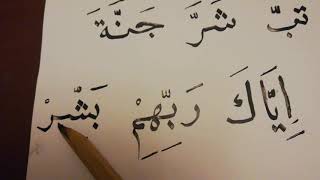 تَبَّ شَرَّ جَنَّةَ
اِيَّاكَ رَبِّهِمْ بَشِّرْ